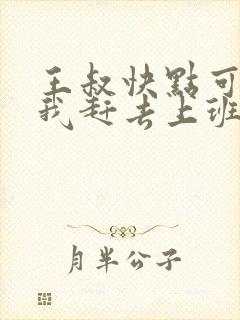 王叔快點可
我赶去上班
月半公子